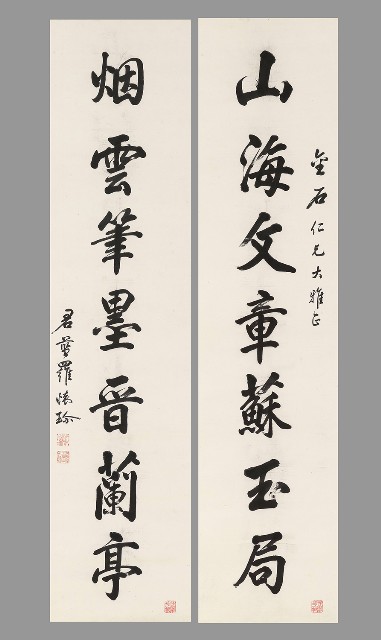 金石仁兄大雅正
山海文章蘇玉局
烟雲筆墨晉蘭亭
君羅